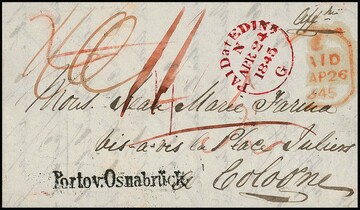 PAID at EDINR
N
APR 24
1845
G
PAID
AP 26
1845
Mons. Jean Marie Farina
vis-a-vis la Place Juliers
Cologne
Porto v: Osnabrück